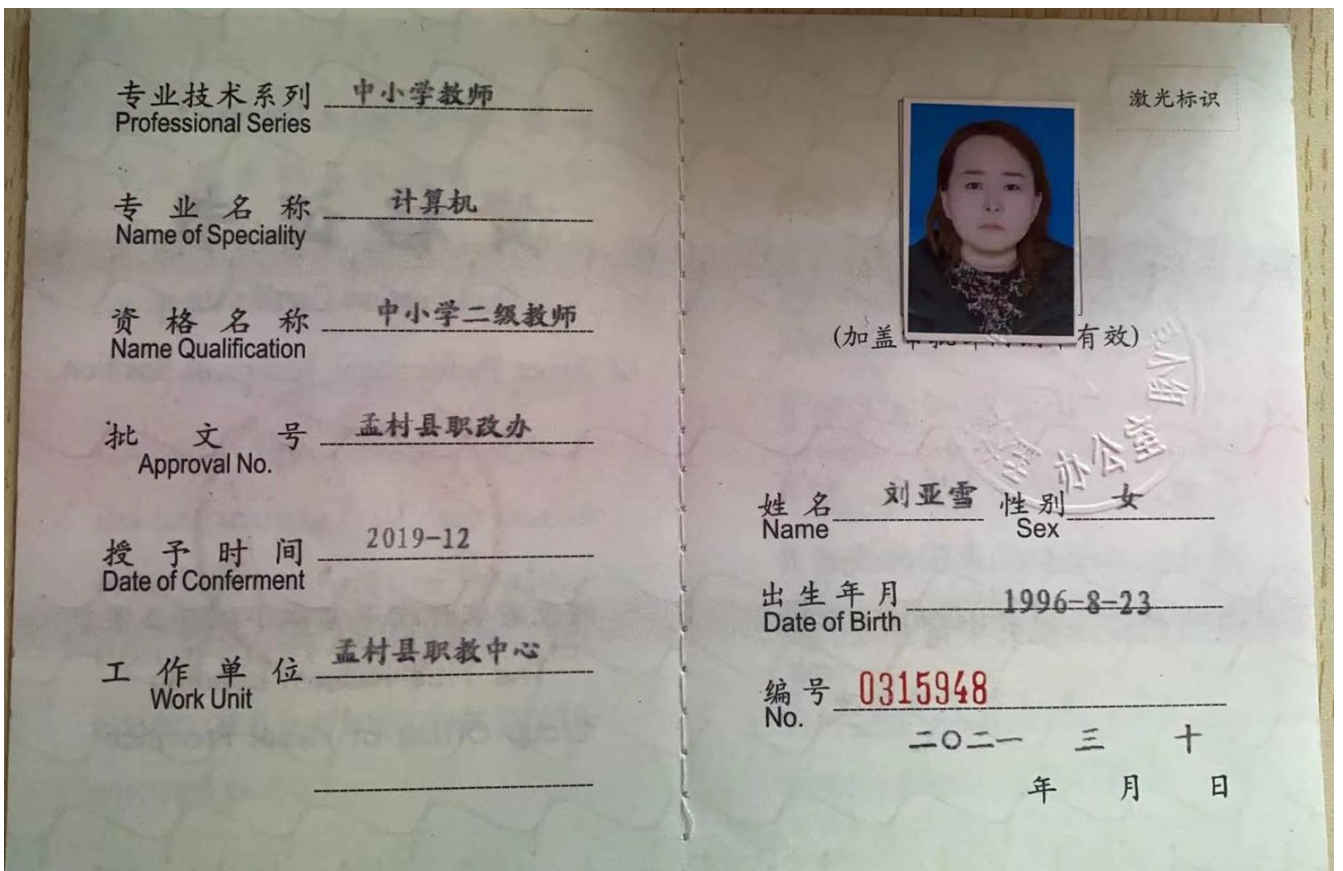 专业技术系列 中小学教师
Professional Series
专业名称 计算机
Name of Speciality
资格名称 中小学二级教师
Name Qualification
批文号 孟村县职改办
Approval No.
授予时间 2019-12
Date of Conferment
工作单位 孟村县职教中心
Work Unit
激光标识
(加盖 有效)
办公室
姓名 刘亚雪 性别 女
Name Sex
出生年月 1996-8-23
Date of Birth
编号 0315948
No.
二〇二一 三 十
年 月 日